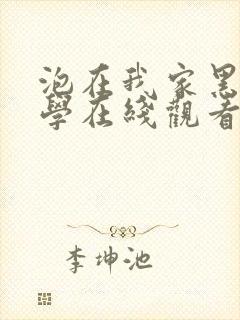 泡在我家黑
學在綫觀看
李坤池